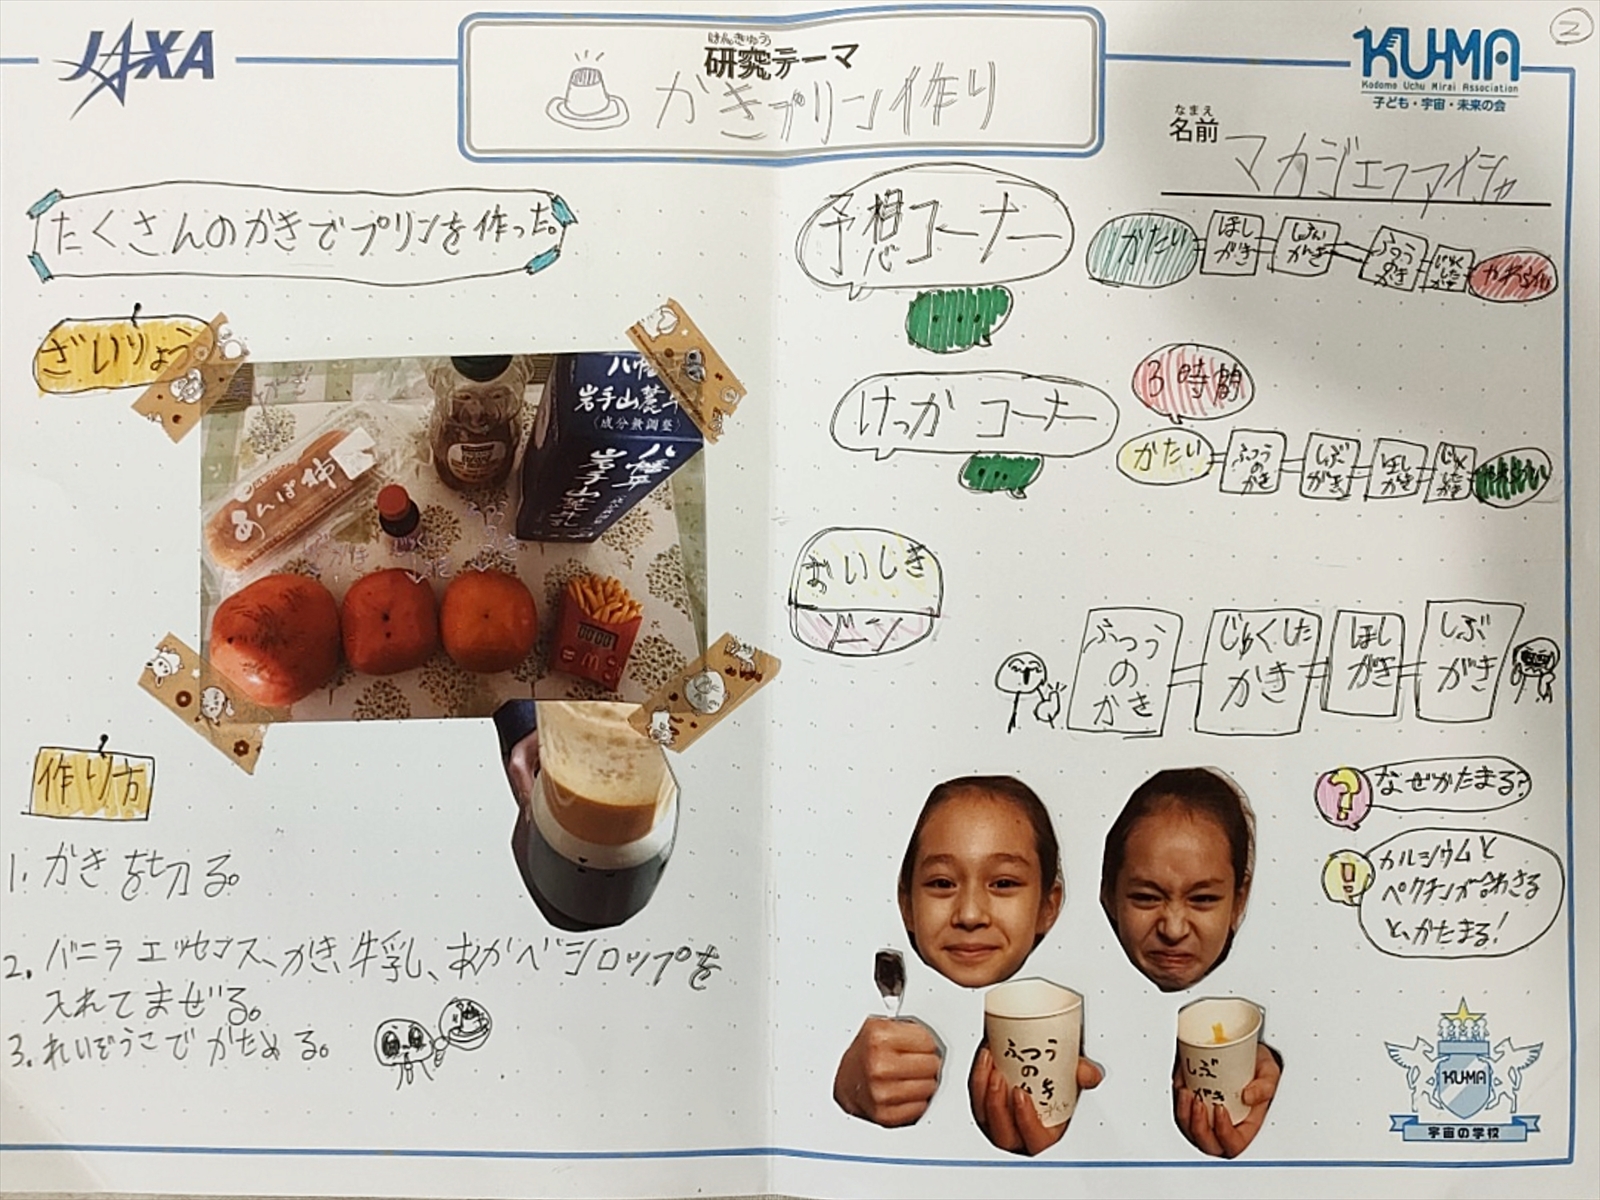 JAXA
けんきゅう
研究テーマ
かきプリン作り
KU-MA
Kodomo Uchu Mirai Association
子ども・宇宙・未来の会
2
なまえ
名前
マカジェファイシャ
たくさんのかきでプリンを作った。
ざいりょう
あんぽ柿
岩手山麓牛
〈成分無調整〉
八幡平
岩手山麓牛乳
00:00
作り方
1. かきを切る。
2. バニラエッセンス、かき、牛乳、あかべシロップを
入れてまぜる。
3. れいぞうこでかためる。
予想コーナー
かたい
ほしがき
しぶがき
ふつうのかき
じゅくしたかき
やわらかい
けっかコーナー
3時間
かたい
ふつうのがき
しぶがき
ほしがき
おいしさ
ゾーン
ふつうのかき
じゅくしたかき
ほしがき
しぶがき
?
なぜかたまる?
!
カルシウムと
ペクチンが合わさる
と、かたまる!
ふつうの
しぶがき
KU-MA
宇宙の学校